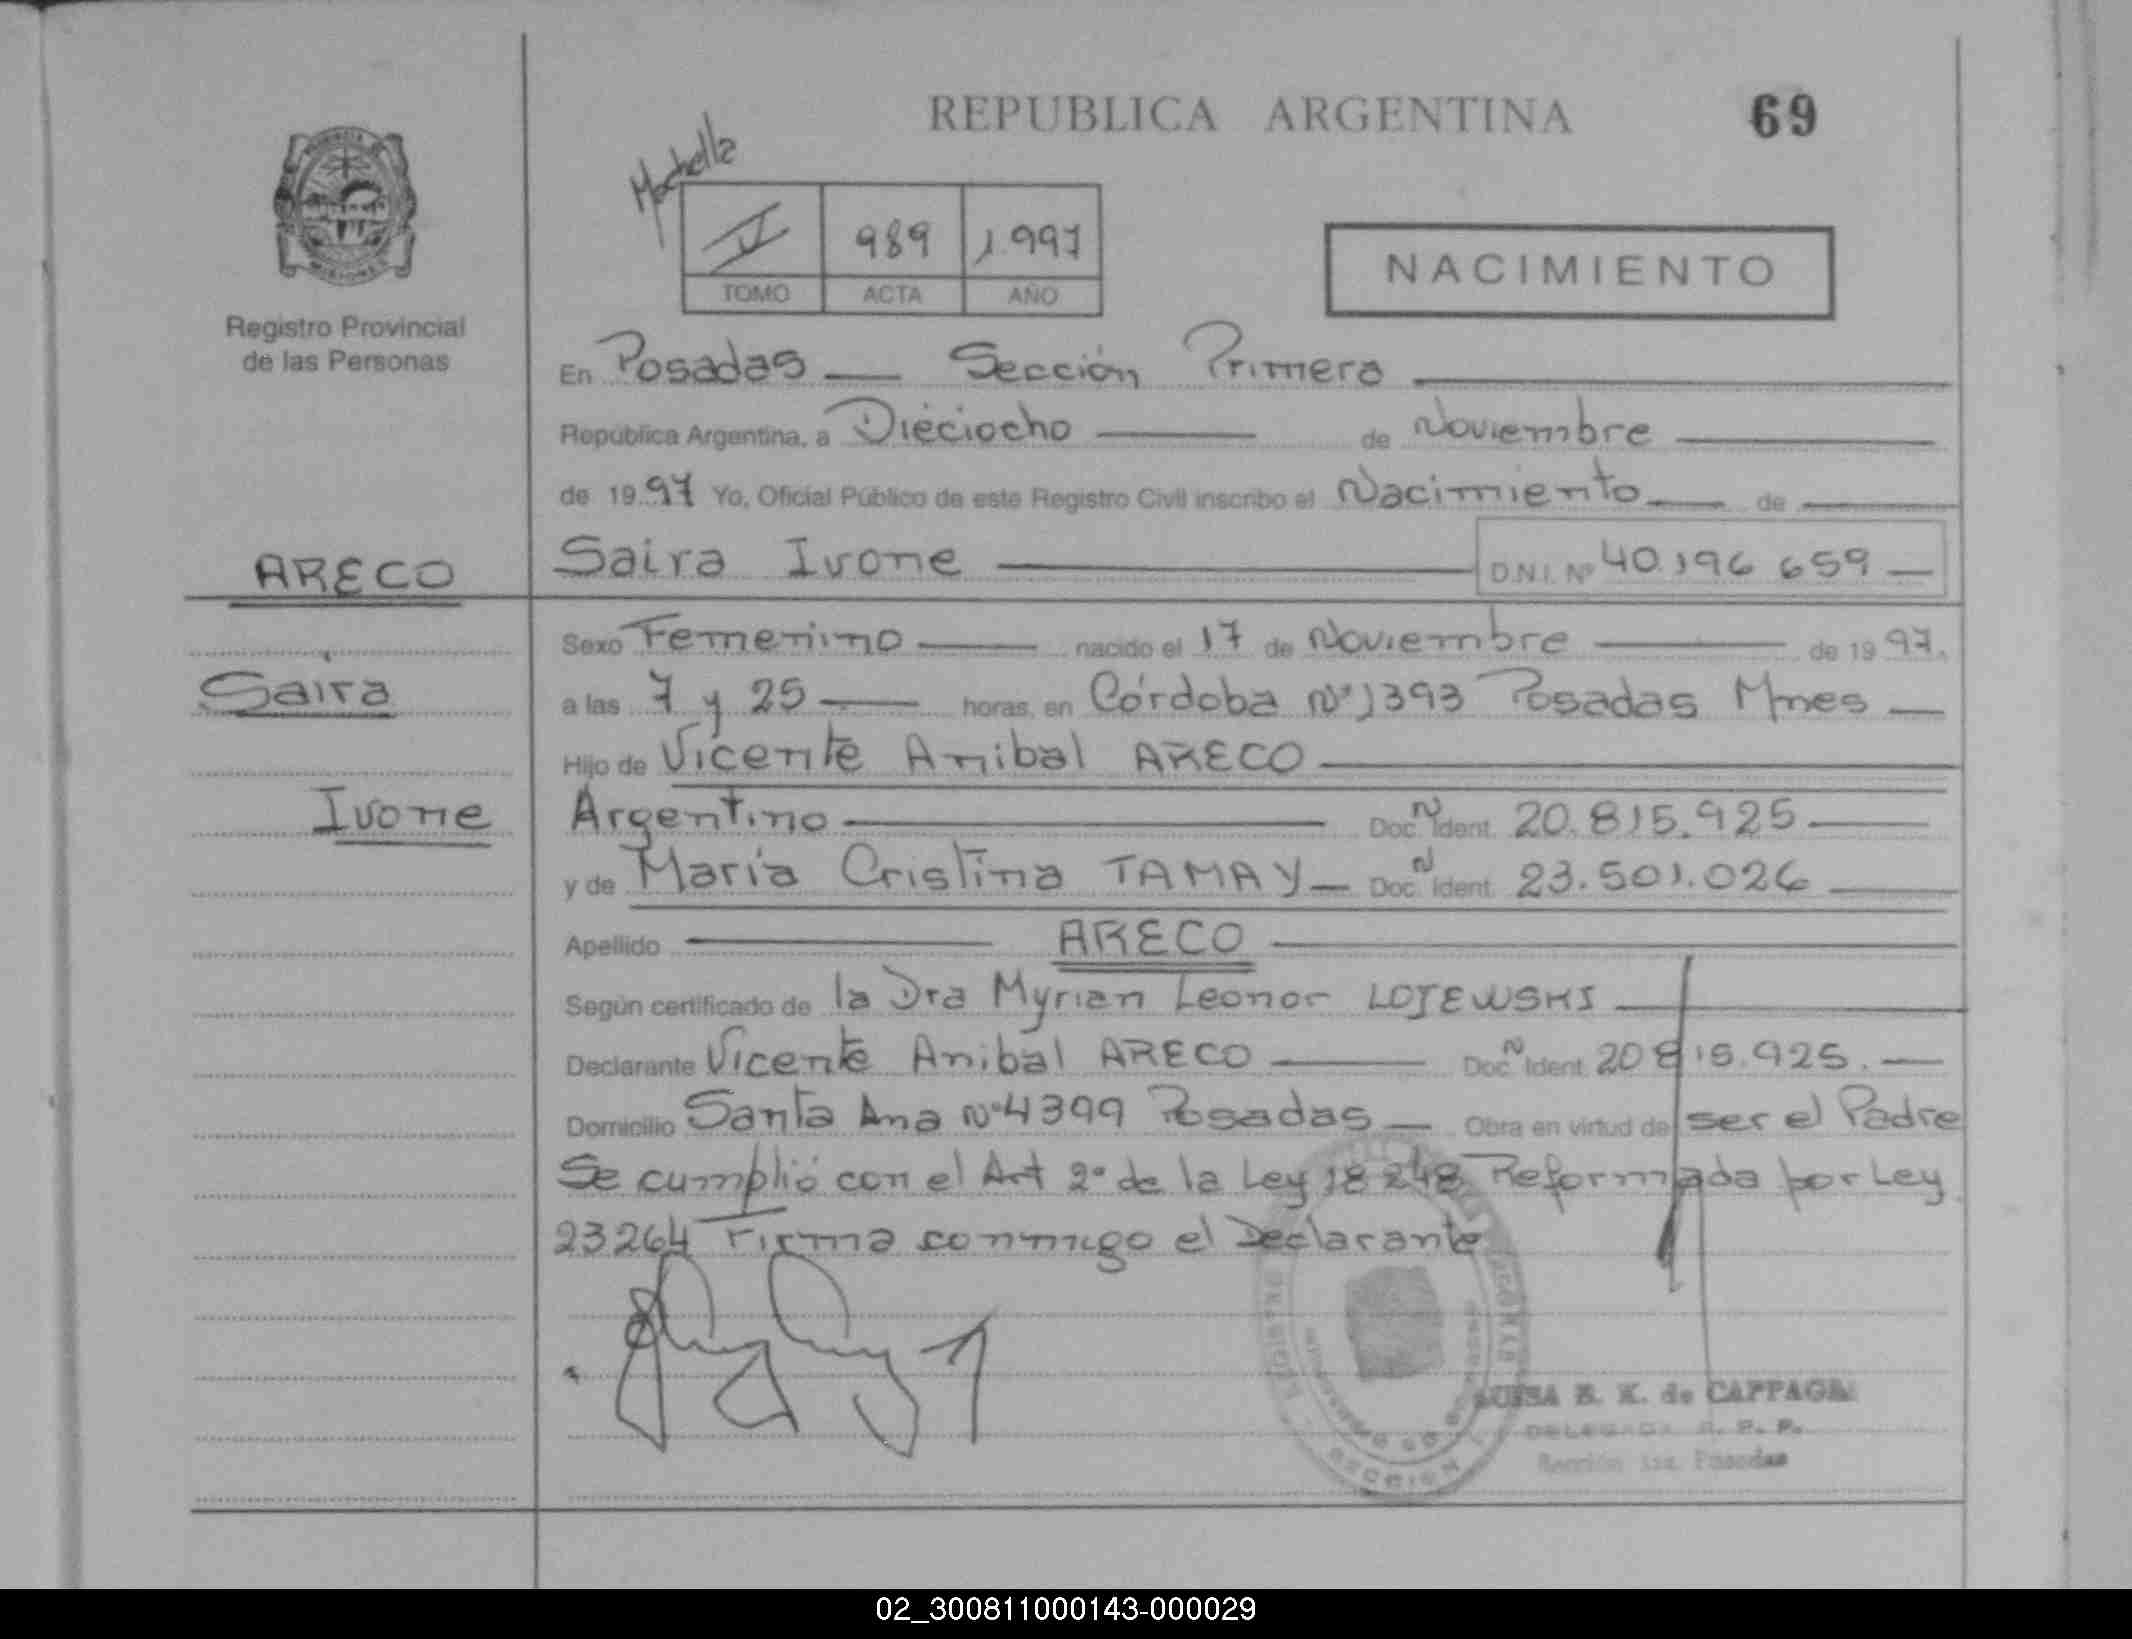 REPUBLICA ARGENTINA
69
Registro Provincial
de las Personas
V 989 1.997
TOMO ACTA AÑO
NACIMIENTO
En Posadas — Sección Primera
República Argentina, a Dieciocho — de Noviembre
de 19 97 Yo, Oficial Público de este Registro Civil inscribo el Nacimiento — de
ARECO
Saira Ivone — D.N.I. Nº 40.196 659 —
Sexo Femenino — nacido el 17 de Noviembre — de 19 97.
Saira
a las 7 y 25 — horas, en Córdoba Nº 1393 Posadas Mnes —
Hijo de Vicente Anibal ARECO
Ivone
Argentino — Doc. N Ident. 20.815.925 —
y de María Cristina TAMAY — Doc. N Ident. 23.501.026 —
Apellido — ARECO —
Según certificado de la Dra Myrian Leonor LOJEWSKI —
Declarante Vicente Anibal ARECO — Doc. N Ident. 20 815.925. —
Domicilio Santa Ana Nº 4399 Posadas — Obra en virtud de ser el Padre
Se cumplió con el Art 2º de la Ley 18248 Reformada por Ley
23264 Firma conmigo el Declarante
LUISA B. K. de CAPPAGLI
DELEGADA R. P. P.
Sección 1ra. Posadas
02_300811000143-000029